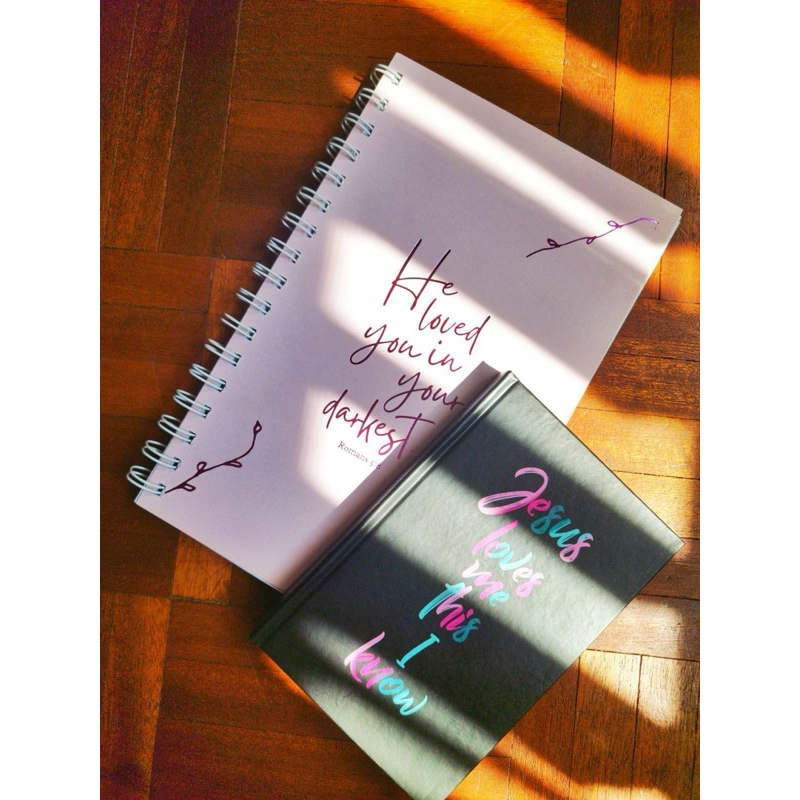 He
loved
you in
your
darkest.
Romans 5:8
Jesus
loves
me
this
I
know